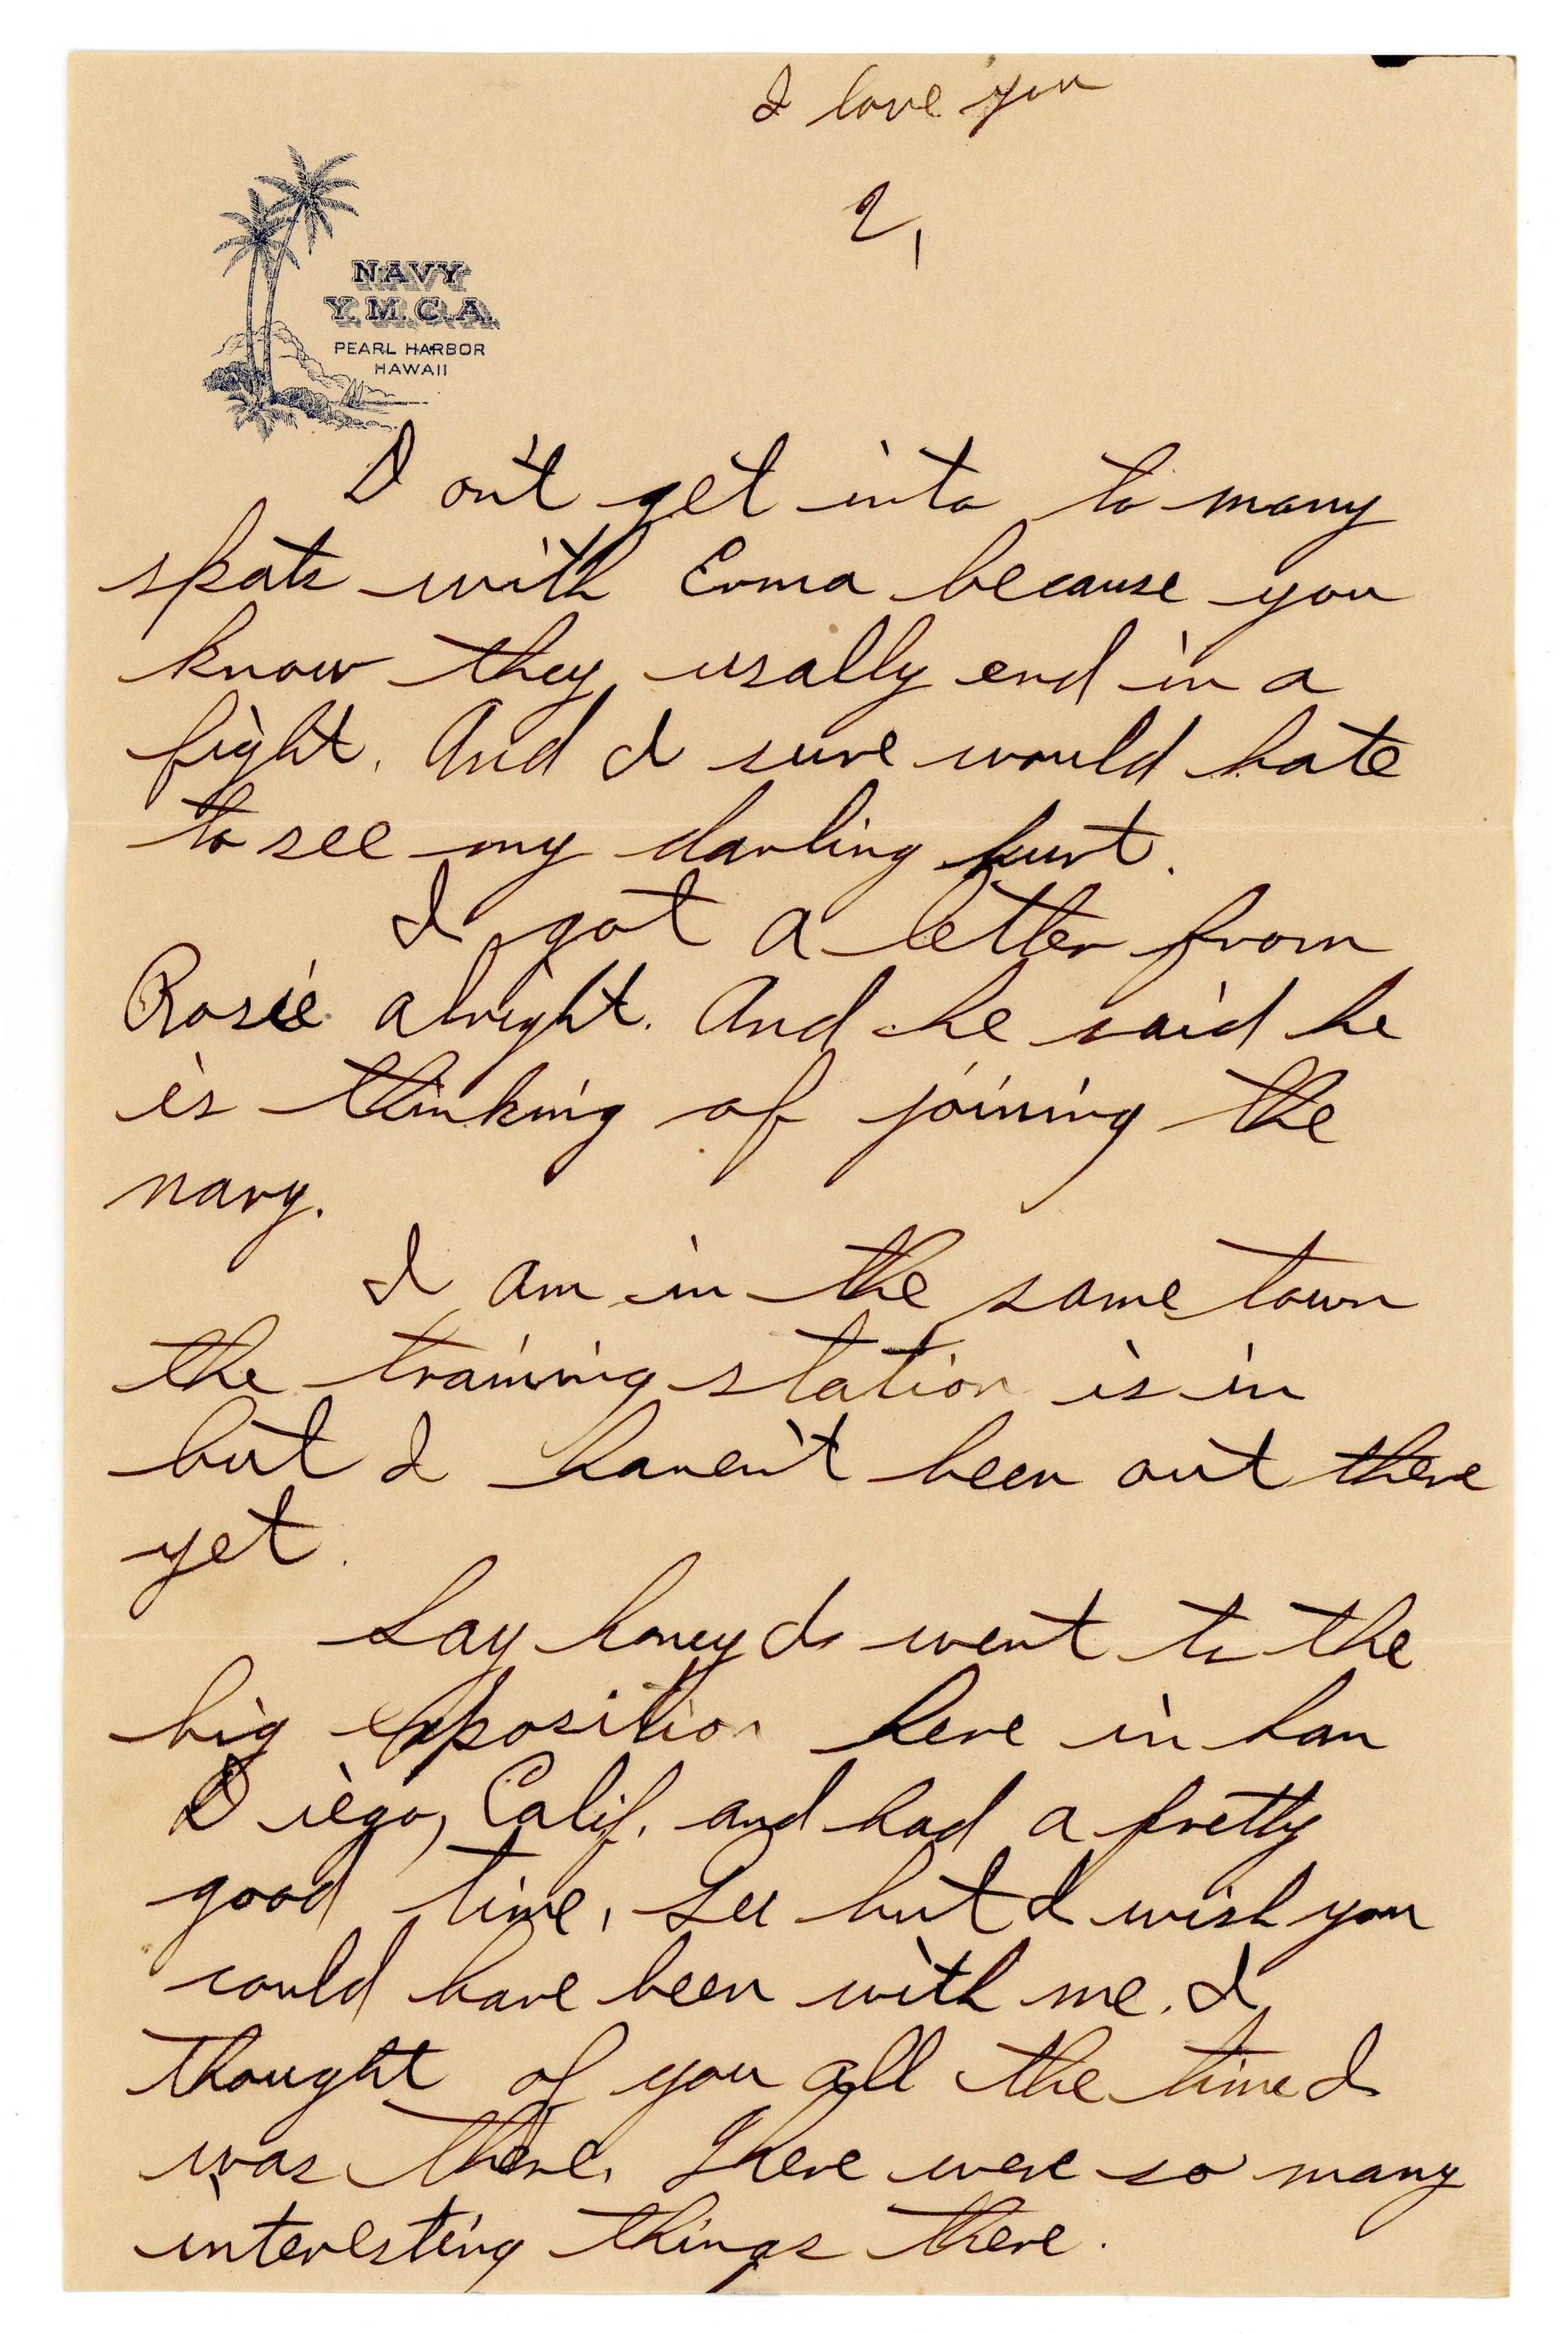 I love you
2,
NAVY
Y.M.C.A.
PEARL HARBOR
HAWAII
Don't get into to many
spats with Erma because you
know they usally end in a
fight. And I sure would hate
to see my darling hurt.
I got a letter from
Rosie alright. And he said he
is thinking of joining the
navy.
I am in the same town
the training station is in
but I haven't been out there
yet.
Say honey I went to the
big expposition here in San
Diego, Calif. and had a pretty
good time, Gee but I wish you
could have been with me. I
thought of you all the time I
was there. There were so many
interesting things there.